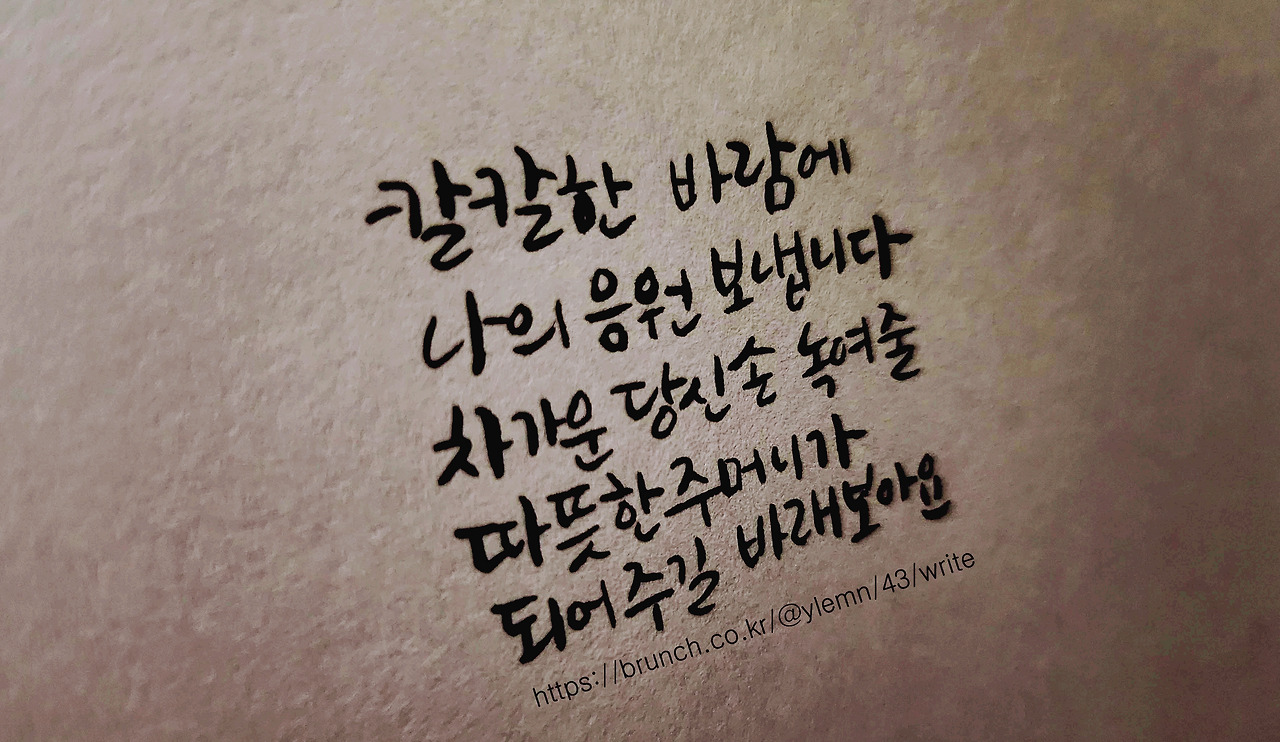 칼칼한 바람에
나의 응원 보냅니다
차가운 당신손 녹여줄
따뜻한 주머니가
되어주길 바래보아요
https://brunch.co.kr/@ylemn/43/write